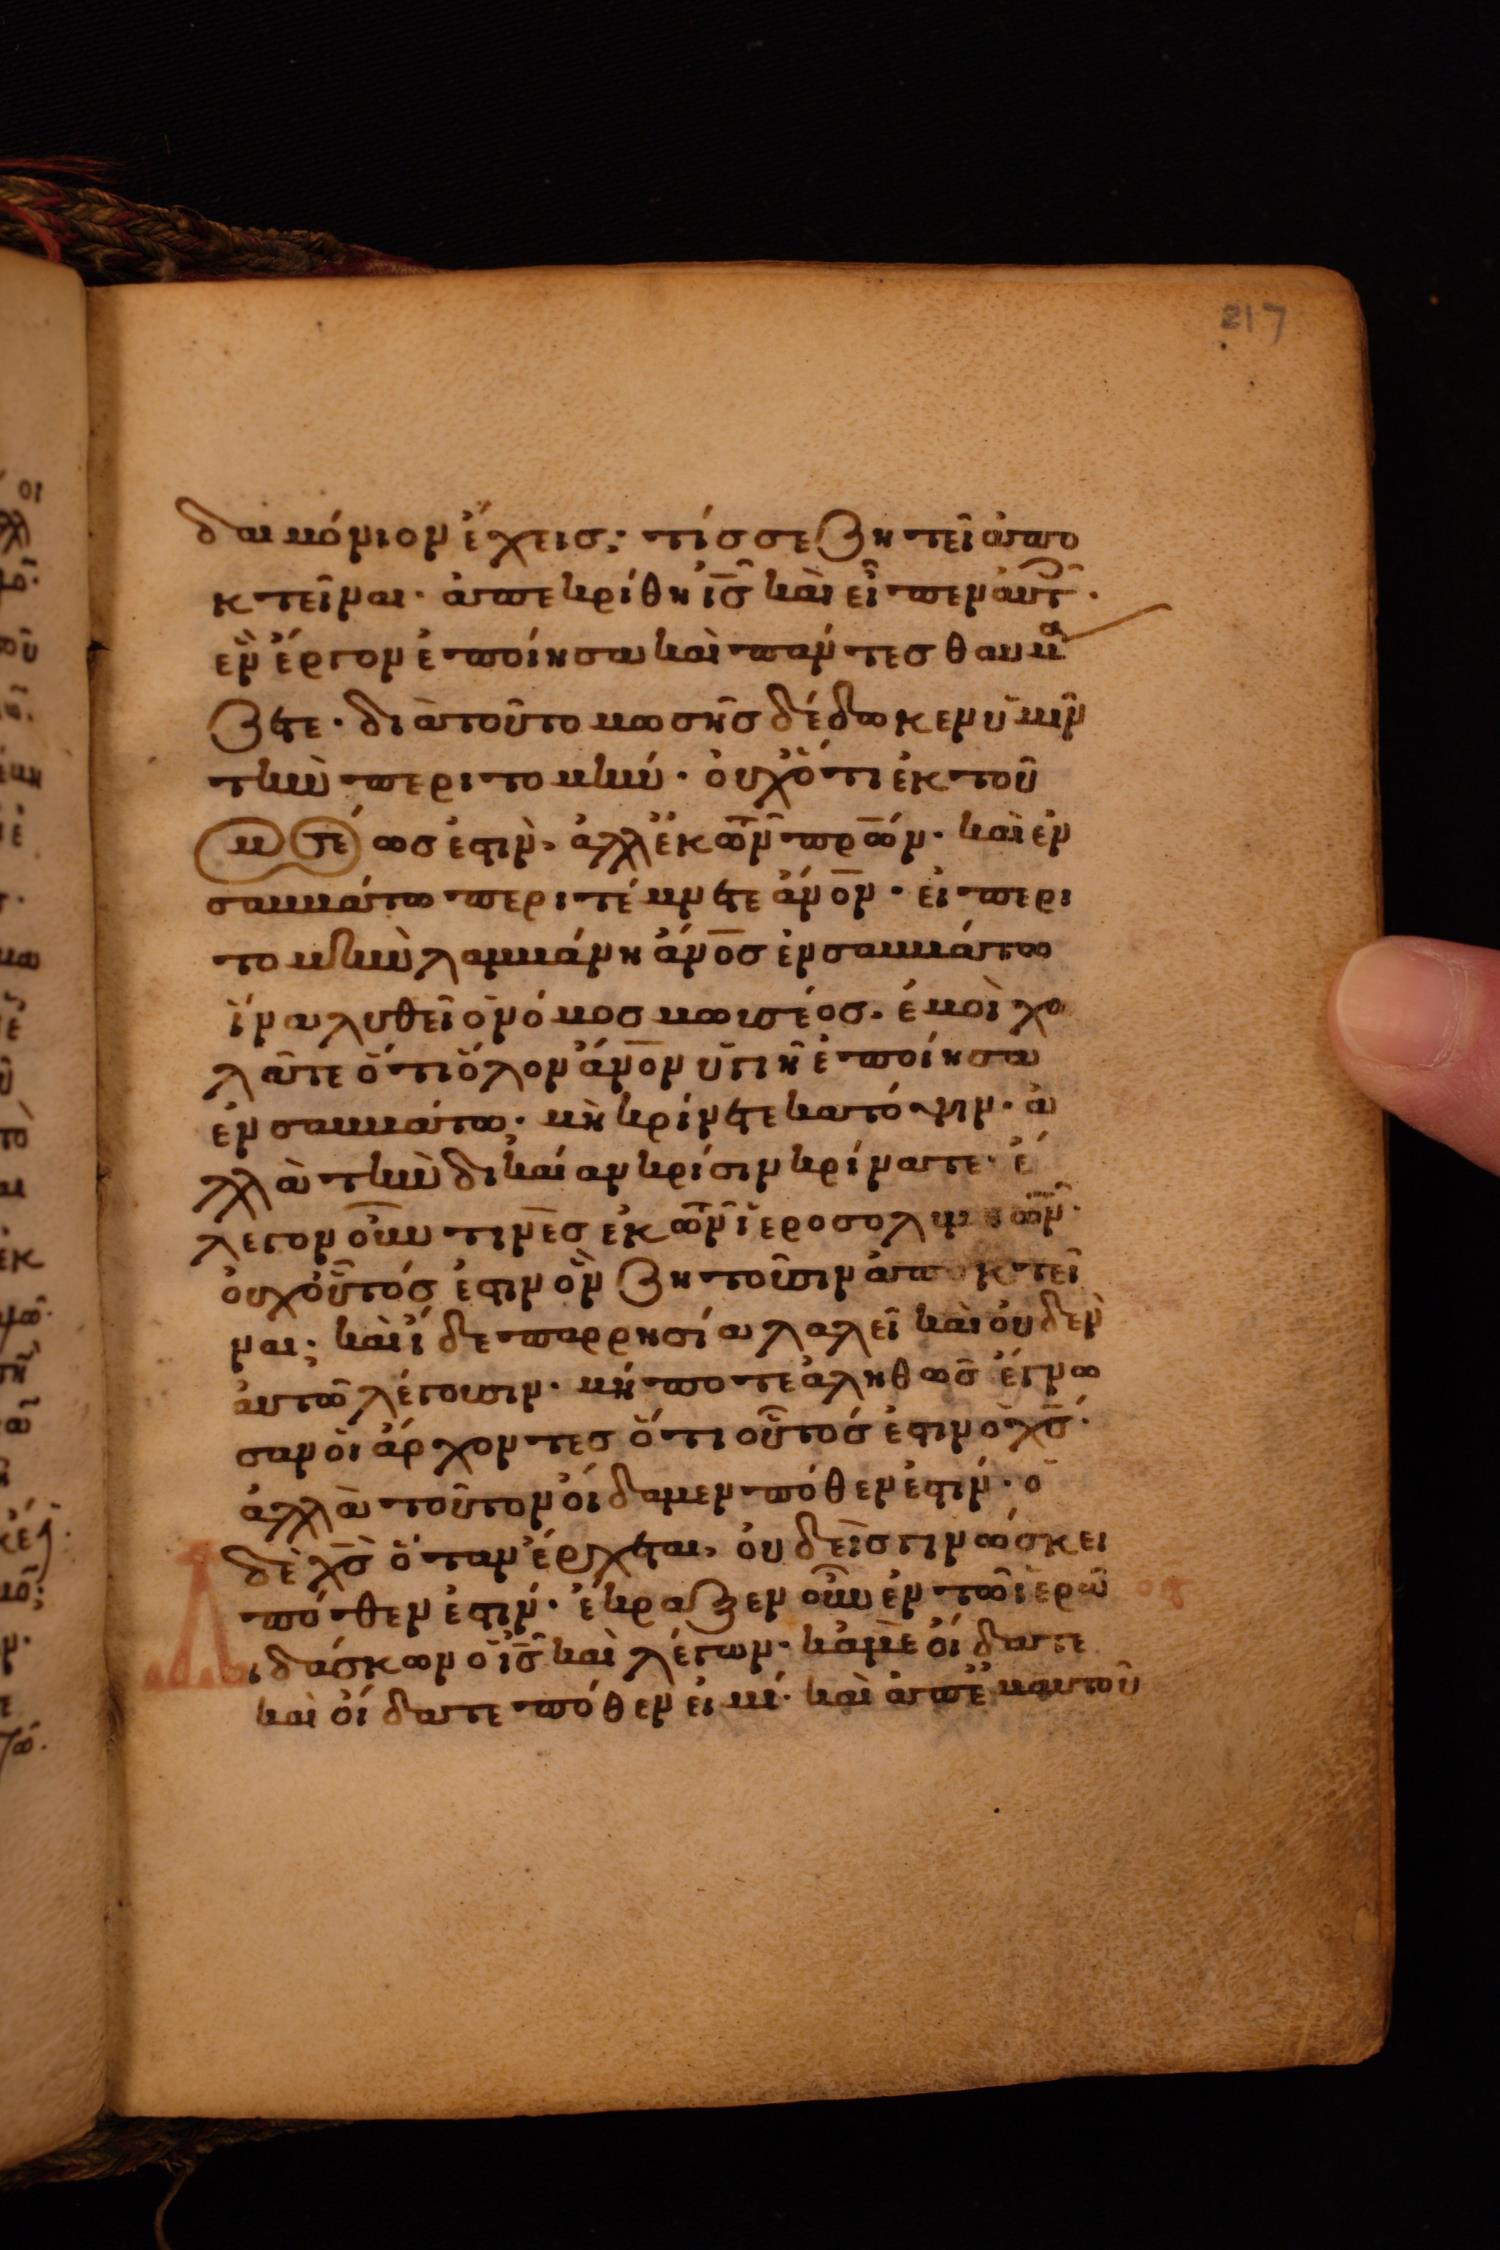 217
δαιμόνιον ἔχεις; τίς σε ζητεῖ ἀπο
κτεῖναι· ἀπεκρίθη ἰ̅ς̅ καὶ εἶπεν αὐτ̑·
ἓν ἔργον ἐποίησα καὶ πάντες θαυμα
ζετε· διὰ τοῦτο μωσῆς δέδωκεν ὑμῖν
τὴν περιτομήν· οὐχ ὅτι ἐκ τοῦ
μ σέ ως ἐστὶν, ἀλλ ἐκ τῶν π̅ρ̅ω̅ν· καὶ ἐν
σαββάτω περιτέμνετε ἄ̅ν̅ο̅ν· εἰ περι
τομὴν λαμβάνη ἄ̅ν̅ο̅ς ἐν σαββάτω
ἵνα λυθεῖ ὁ νόμος μωυσέος. ἐμοὶ χο
λᾶτε ὅτι ὅλον ἄ̅ν̅ο̅ν ὑγιῆ ἐποίησα
ἐν σαββάτω· μὴ κρίνετε κατ ὄψιν· ἀ
λλὰ τὴν δικαίαν κρίσιν κρίνατε· ἔ
λεγον οὖν τινὲς ἐκ τῶν ἱεροσολυμιτῶν·
οὐχ οὗτός ἐστιν ὃν ζητοῦσιν ἀποκτεῖ
ναι; καὶ ἴδε παρρησία λαλεῖ καὶ οὐδὲν
αὐτῶ λέγουσιν· μήποτε ἀληθῶς ἔγνω
σαν οἱ ἄρχοντες ὅτι οὗτός ἐστιν ὁ χ̅ς̅·
ἀλλὰ τοῦτον οἴδαμεν πόθεν ἐστίν· ὁ
δὲ χ̅ς̅ ὅταν ἔρχεται, οὐδεὶς γινώσκει
πόθεν ἐστίν· ἔκραζεν οὖν ἐν τῶ ἱερῶ
Διδάσκων ὁ ἰ̅ς̅ καὶ λέγων· κἀμὲ οἴδατε
καὶ οἴδατε πόθεν εἰμί· καὶ ἀπ ἐμαυτοῦ